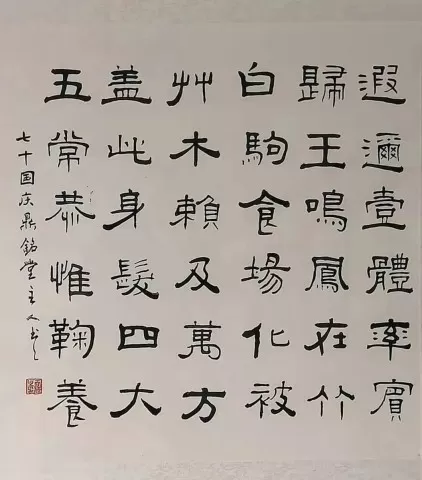 遐邇壹體率賓
歸王鳴鳳在竹
白駒食場化被
艸木賴及萬方
盖此身髮四大
五常恭惟鞠養
七十国庆鼎銘堂主人书